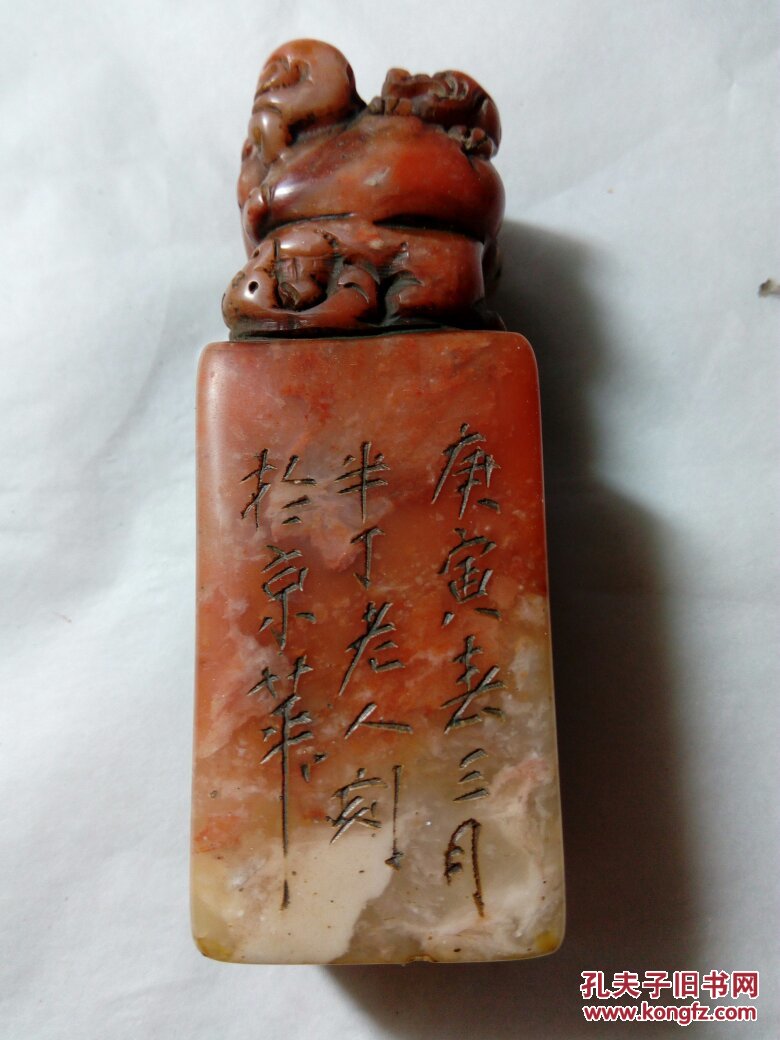 庚寅春三月
半丁老人刻
於京華
孔夫子旧书网
www.kongfz.com